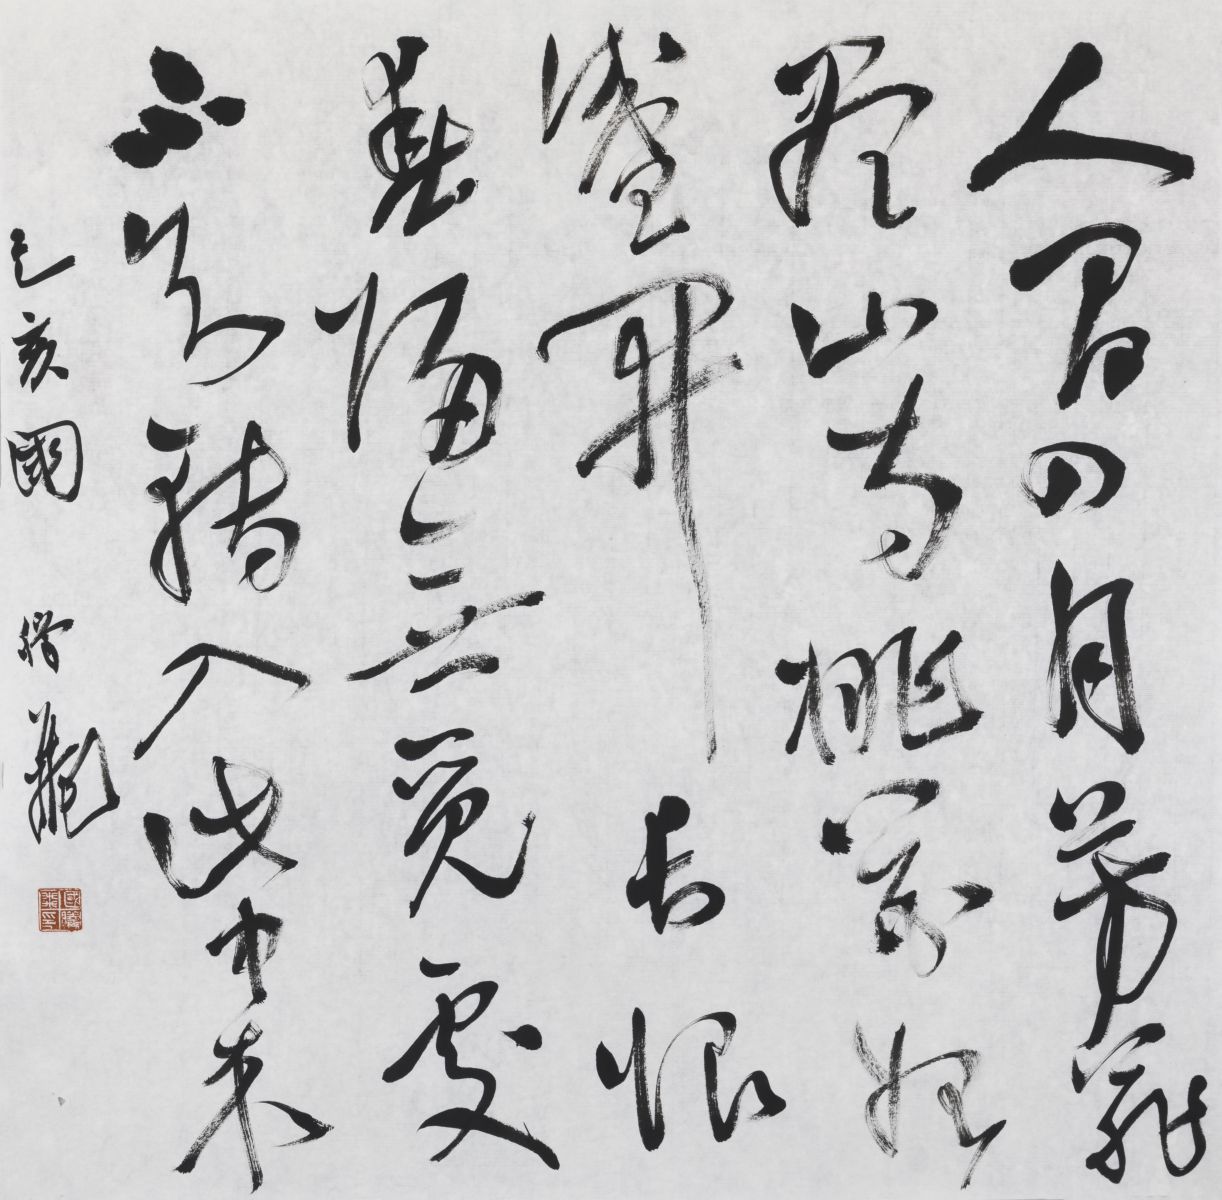 人間四月芳菲
盡山寺桃花始
盛開長恨
春歸無覓處
不知轉入此中来
己亥國